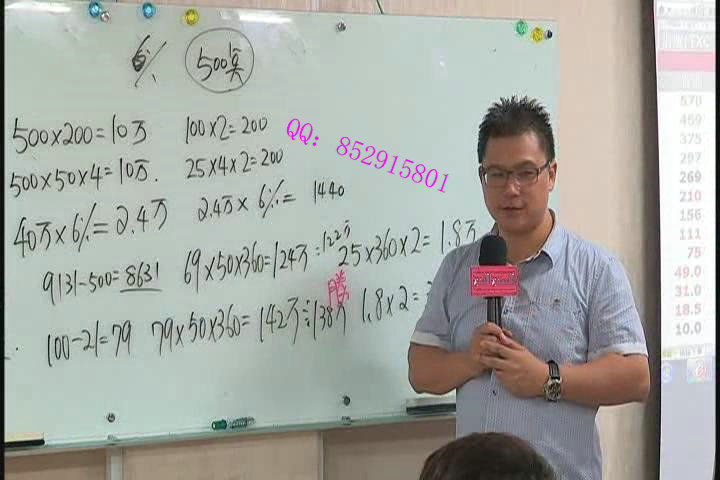 6% 500集
500×200=10万 100×2=200
QQ: 852915801
500×50×4=10万. 25×4×2=200
40万×6%=2.4万 2.4万×6%= 1440
9131-500=8631 69×50×360=124万 122万 25×360×2=1.8万
100-21=79 79×50×360=142万 138万 1.8×2=
勝
570
459
375
297
269
210
156
111
75
49.0
31.0
18.5
10.0